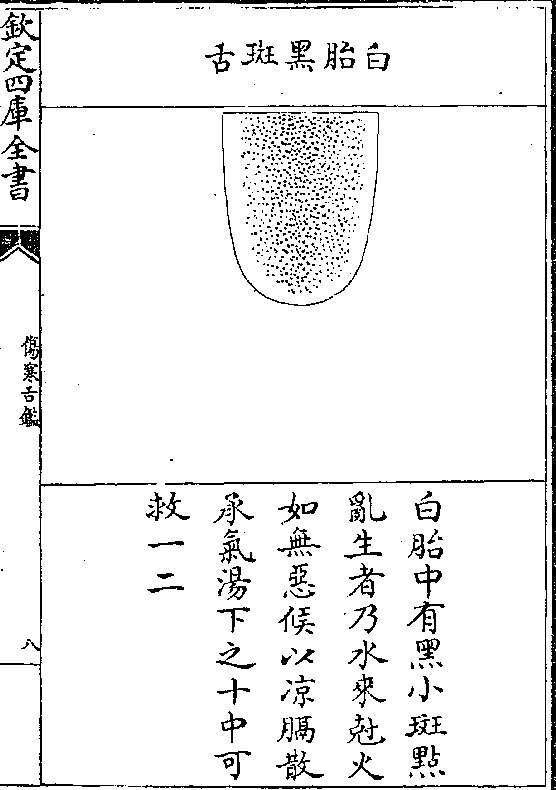 白胎黑斑舌
白胎中有黑小斑點
亂生者乃水來尅火
如無惡候以凉膈散
承氣湯下之十中可
救一二
欽定四庫全書
傷寒舌鑑
八